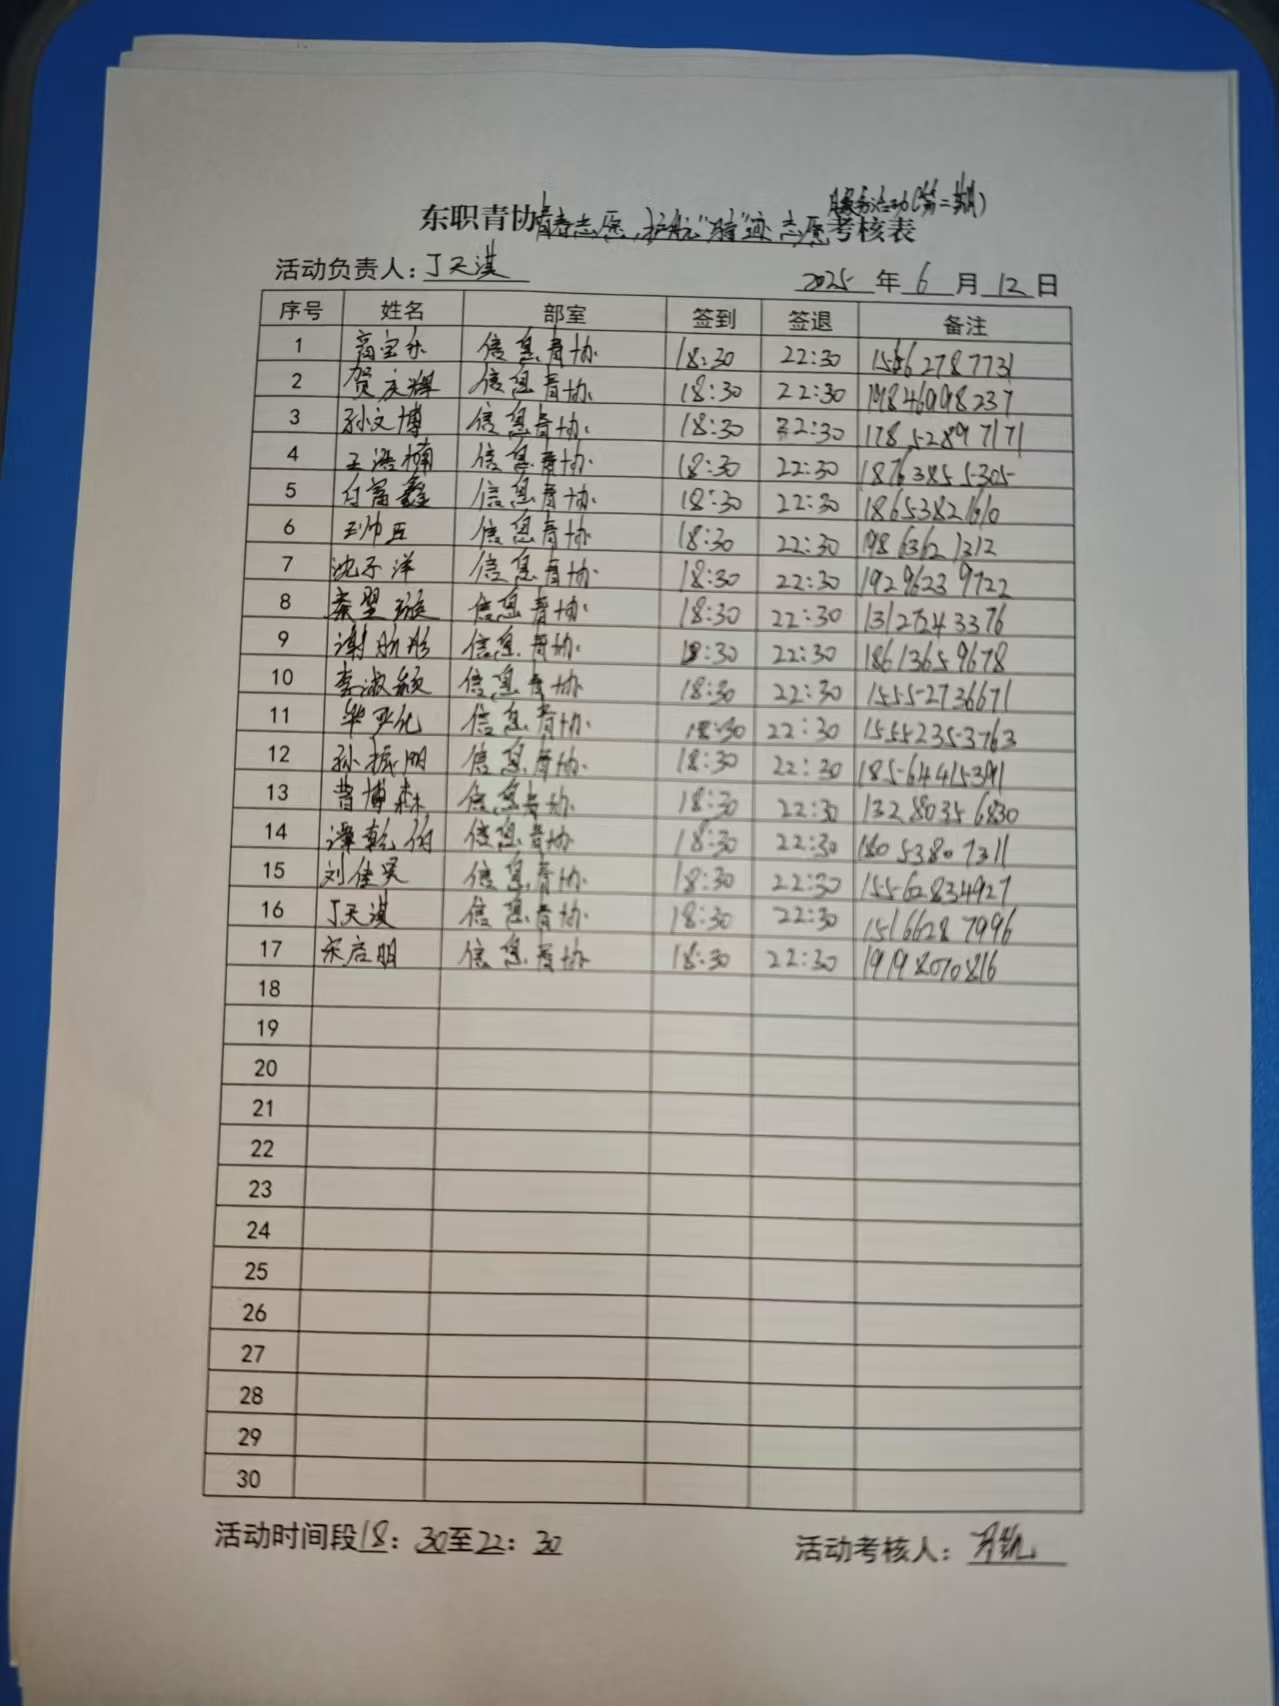 服务活动(第二期)
东职青协青春志愿,护航"骑"迹 志愿考核表
活动负责人:丁天淇 2025 年 6 月 12 日
序号 姓名 部室 签到 签退 备注
1 信息青协 18:30 22:30 15562787731
2 贺庆辉 信息青协 18:30 22:30 19846098237
3 孙文博 信息青协 18:30 22:30 17852897171
4 王浩楠 信息青协 18:30 22:30 18763855305
5 付富鑫 信息青协 18:30 22:30 18653821610
6 信息青协 18:30 22:30
7 沈子洋 信息青协 18:30 22:30 19296239722
8 秦翌璇 信息青协 18:30 22:30
9 信息青协 18:30 22:30 18613659678
10 李淑颖 信息青协 18:30 22:30 15552736671
11 信息青协 18:30 22:30 15552353763
12 孙振明 信息青协 18:30 22:30 18564415391
13 曹博森 信息青协 18:30 22:30 13280356830
14 谭乾 信息青协 18:30 22:30 18053807311
15 刘佳昊 信息青协 18:30 22:30 15562834927
16 丁天淇 信息青协 18:30 22:30 15166287996
17 宋启明 信息青协 18:30 22:30 19198070816
18
19
20
21
22
23
24
25
26
27
28
29
30
活动时间段18:30至22:30 活动考核人: